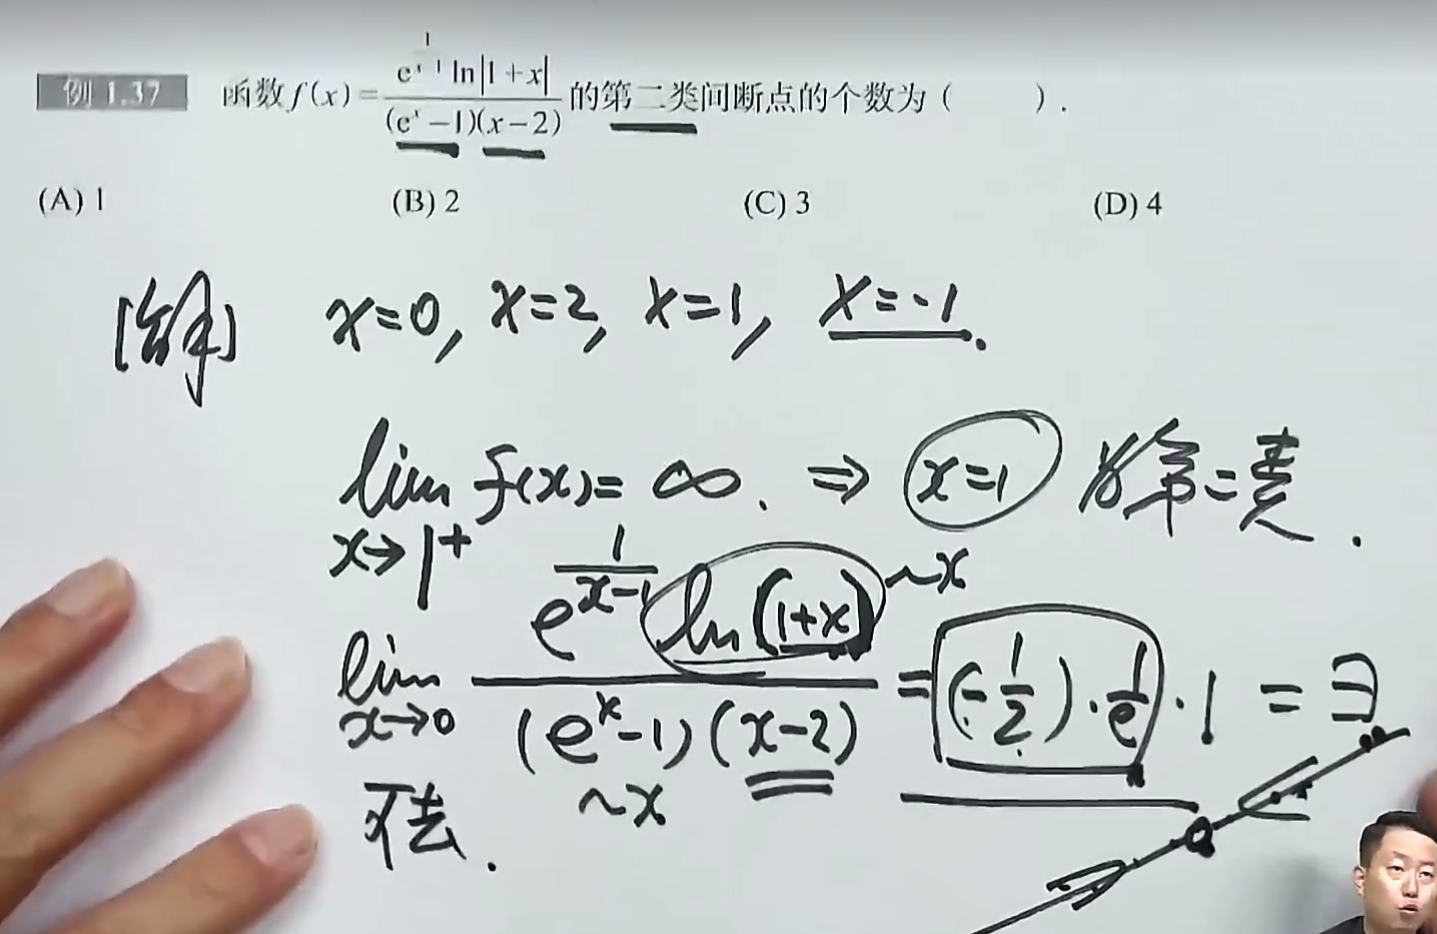 例 1.37 函数 f(x)=\frac{e^{\frac{1}{x-1}}\ln|1+x|}{(e^x-1)(x-2)} 的第二类间断点的个数为( ).
(A) 1 (B) 2 (C) 3 (D) 4
[解] x=0, x=2, x=1, x=-1.
\lim_{x→1^+} f(x)=∞. ⇒ x=1 为第二类.
\lim_{x→0} \frac{e^{\frac{1}{x-1}}\ln(1+x)}{(e^x-1)(x-2)} = (-\frac{1}{2})·\frac{1}{e}·1 = ∃
~x
~x
可去.